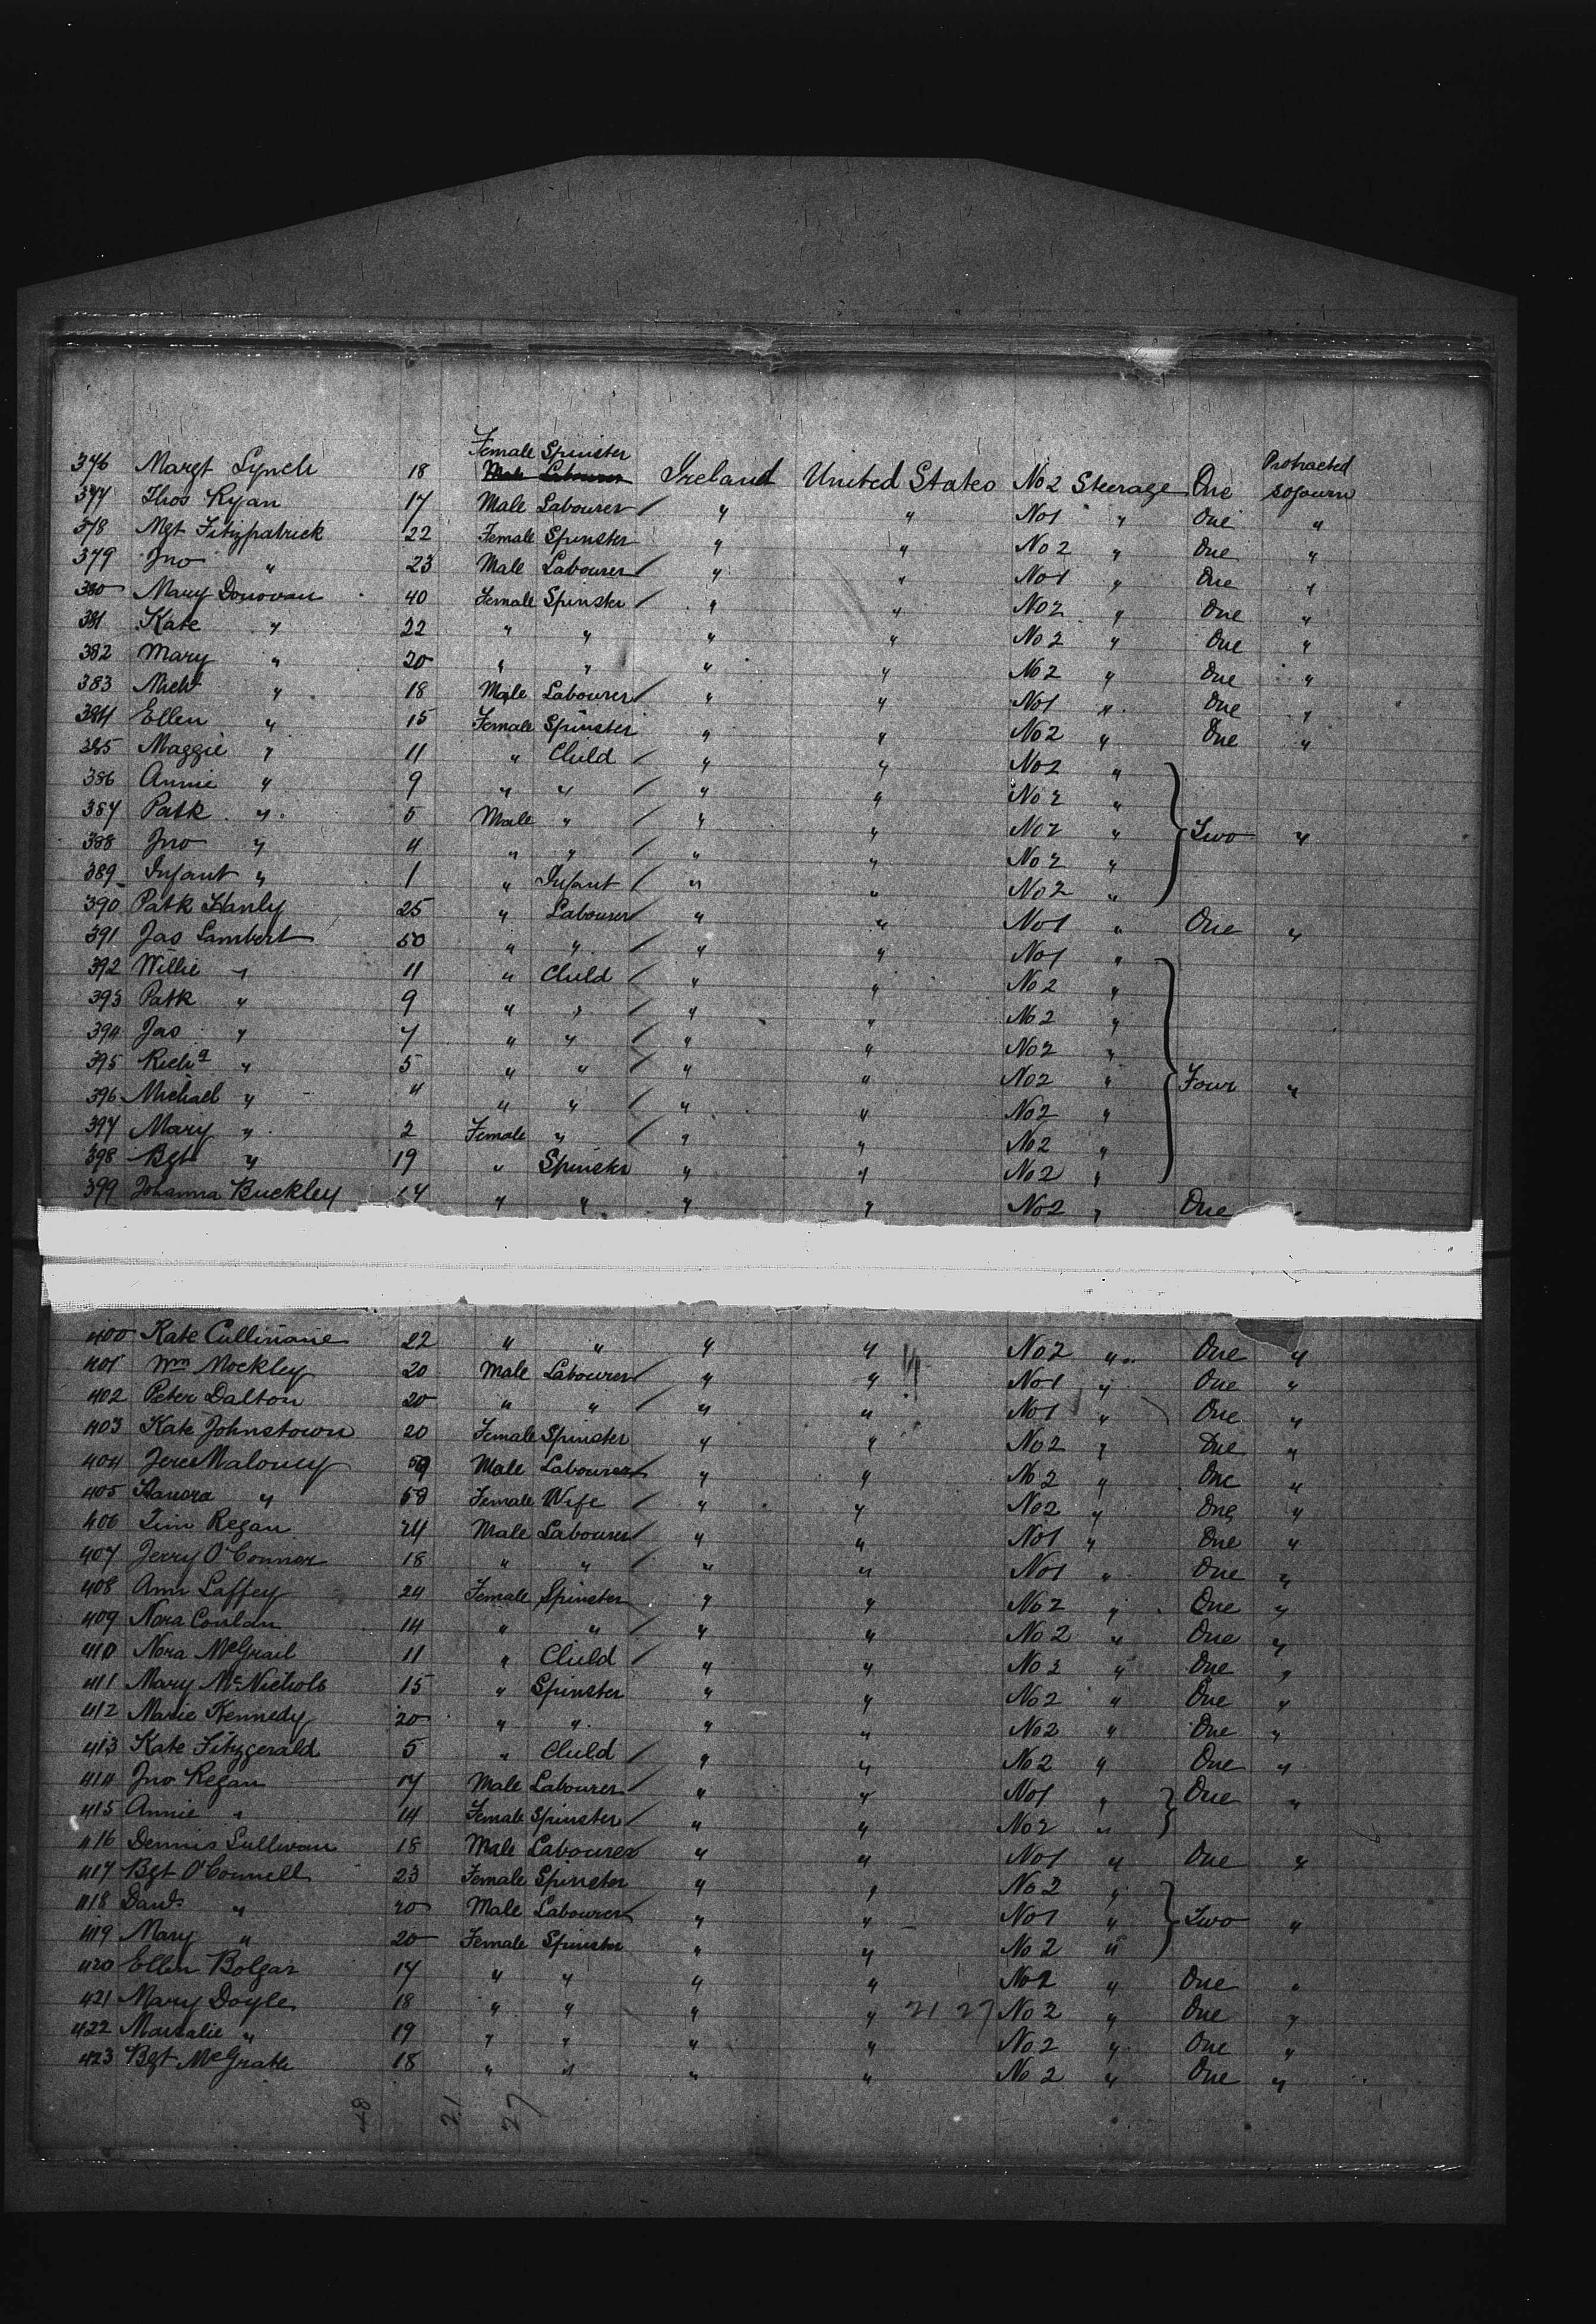 Female Spinster
376 Margt Lynch 18 Male Labourer Ireland United States No 2 Steerage One Protracted sojourn
377 Thos Ryan 17 Male Labourer / " " No 1 " One "
378 Mgt Fitzpatrick 22 Female Spinster " " No 2 " One "
379 Jno " 23 Male Labourer / " " No 1 " One "
380 Mary Donovan 40 Female Spinster / " " No 2 " One "
381 Kate " 22 " " " " No 2 " One "
382 Mary " 20 " " " " No 2 " One "
383 Michl " 18 Male Labourer / " " No 1 " One "
384 Ellen " 15 Female Spinster " " No 2 " One "
385 Maggie " 11 " Child / " " No 2 "
386 Annie " 9 " " / " " No 2 "
387 Patk " 5 Male " / " " No 2 " Two "
388 Jno " 4 " " / " " No 2 "
389 Infant " 1 " Infant / " " No 2 "
390 Patk Hanly 25 " Labourer " " No 1 " One "
391 Jas Lambert 50 " " / " " No 1 "
392 Willie " 11 " Child / " " No 2 "
393 Patk " 9 " " / " " No 2 "
394 Jas " 7 " " / " " No 2 "
395 Richd " 5 " " / " " No 2 " Four "
396 Michael " 4 " " / " " No 2 "
397 Mary " 2 Female " / " " No 2 "
398 Bgt " 19 " Spinster " " No 2 "
399 Johanna Buckley 17 " " " " No 2 " One "
400 Kate Cullinane 22 " " " " No 2 " One "
401 Wm Mockley 20 Male Labourer / " " No 1 " One "
402 Peter Dalton 20 " " / " " No 1 " One "
403 Kate Johnstown 20 Female Spinster " " No 2 " One "
404 Jere Maloney 59 Male Labourer " " No 2 " One "
405 Hanora " 58 Female Wife / " " No 2 " One "
406 Tim Regan 24 Male Labourer / " " No 1 " One "
407 Jerry O'Connor 18 " " / " " No 1 " One "
408 Ann Laffey 24 Female Spinster " " No 2 " One "
409 Nora Conlan 14 " " / " " No 2 " One "
410 Nora McGrail 11 " Child / " " No 2 " One "
411 Mary McNichols 15 " Spinster " " No 2 " One "
412 Marie Kennedy 20 " " " " No 2 " One "
413 Kate Fitzgerald 5 " Child / " " No 2 " One "
414 Jno Regan 17 Male Labourer / " " No 1 " One "
415 Annie " 14 Female Spinster / " " No 2 "
416 Dennis Sullivan 18 Male Labourer " " No 1 " One "
417 Bgt O'Connell 23 Female Spinster " " No 2 "
418 Davd " 20 Male Labourer " " No 1 " Two "
419 Mary " 20 Female Spinster " " No 2 "
420 Ellen Bolgar 17 " " " " No 2 " One "
421 Mary Doyle 18 " " " " 21 27 No 2 " One "
422 " 19 " " " " No 2 " One "
423 Bgt McGrath 18 " " " " No 2 " One "
48 21 27